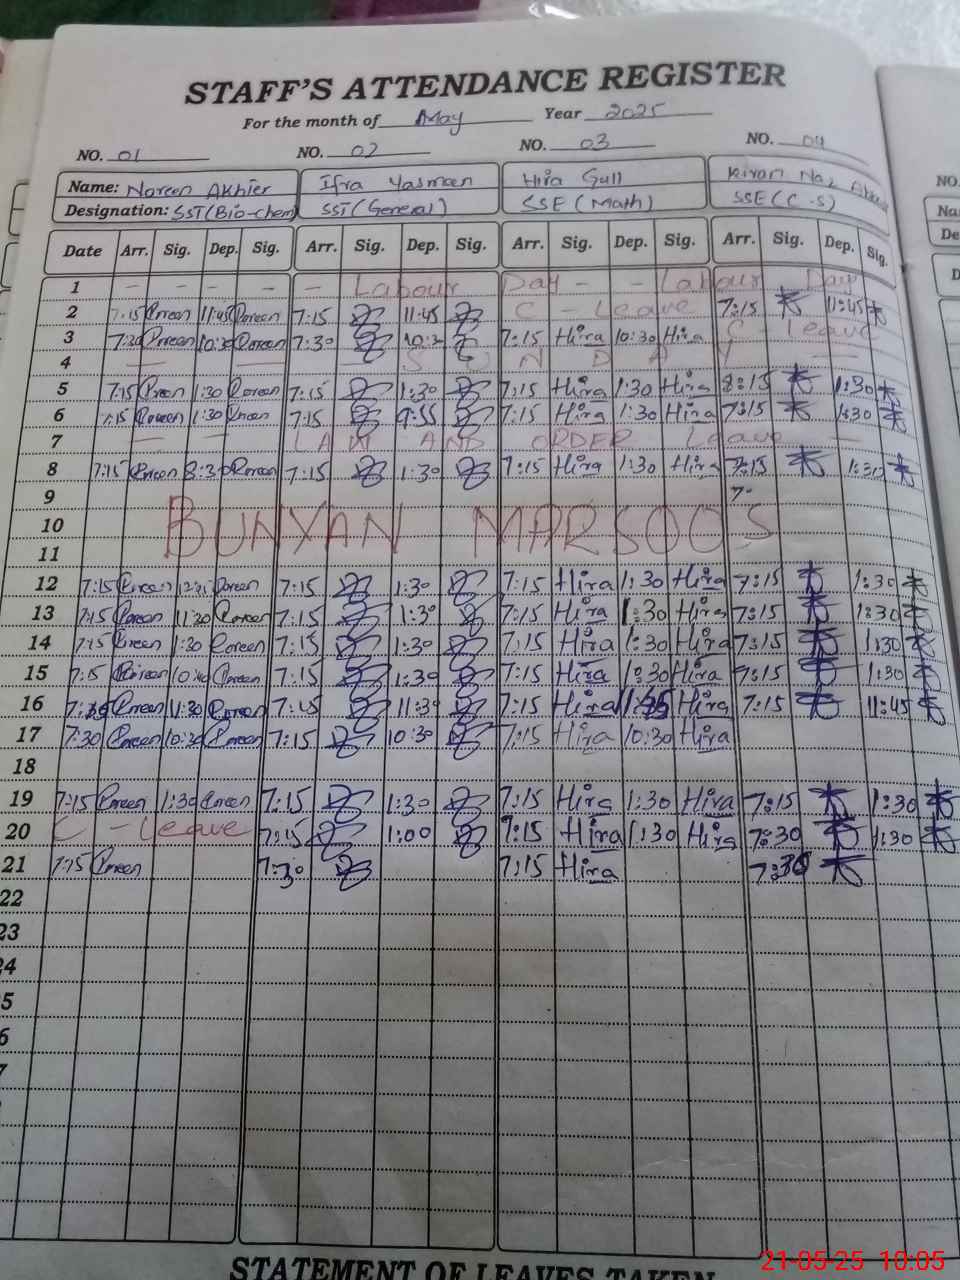 STAFF'S ATTENDANCE REGISTER
For the month of May Year 2025
NO. 01 NO. 02 NO. 03 NO. 04
Name: Noreen Akhter Ifra Yasmeen Hira Gull Kiran Naz
Designation: SST(Bio-chem) SST(General) SSE(Math) SSE(C.S)
Date Arr. Sig. Dep. Sig. Arr. Sig. Dep. Sig. Arr. Sig. Dep. Sig. Arr. Sig. Dep. Sig.
1 - - - - - Labour Day - - Labour Day
2 7:15 11:45 7:15 11:45 C - Leave 7:15 11:45
3 7:30 10:30 7:30 10:30 7:15 Hira 10:30 Hira C - Leave
4 - - - S U N D A Y -
5 7:15 1:30 7:15 1:30 7:15 Hira 1:30 Hira 8:15 1:30
6 7:15 1:30 7:15 9:55 7:15 Hira 1:30 Hira 7:15 1:30
7 - - LAW AND ORDER Leave -
8 7:15 7:15 1:30 7:15 Hira 1:30 Hira 7:15 1:30
9 7-
10 BUNYAN MARSOOS
11
12 7:15 7:15 1:30 7:15 Hira 1:30 Hira 7:15 1:30
13 7:15 11:30 7:15 1:30 7:15 Hira 1:30 Hira 7:15 1:30
14 7:15 1:30 7:15 1:30 7:15 Hira 1:30 Hira 7:15 1:30
15 7:15 7:15 1:30 7:15 Hira 1:30 Hira 7:15 1:30
16 11:30 7:15 11:30 7:15 Hira Hira 7:15 11:45
17 7:30 10:30 7:15 10:30 7:15 Hira 10:30 Hira
18
19 7:15 1:30 7:15 1:30 7:15 Hira 1:30 Hira 7:15 1:30
20 C - Leave 7:15 1:00 7:15 Hira 1:30 Hira 7:30 1:30
21 7:15 7:30 7:15 Hira 7:30
22
23
24
5
6
7
STATEMENT OF LEAVES TAKEN
21-05-25 10:05